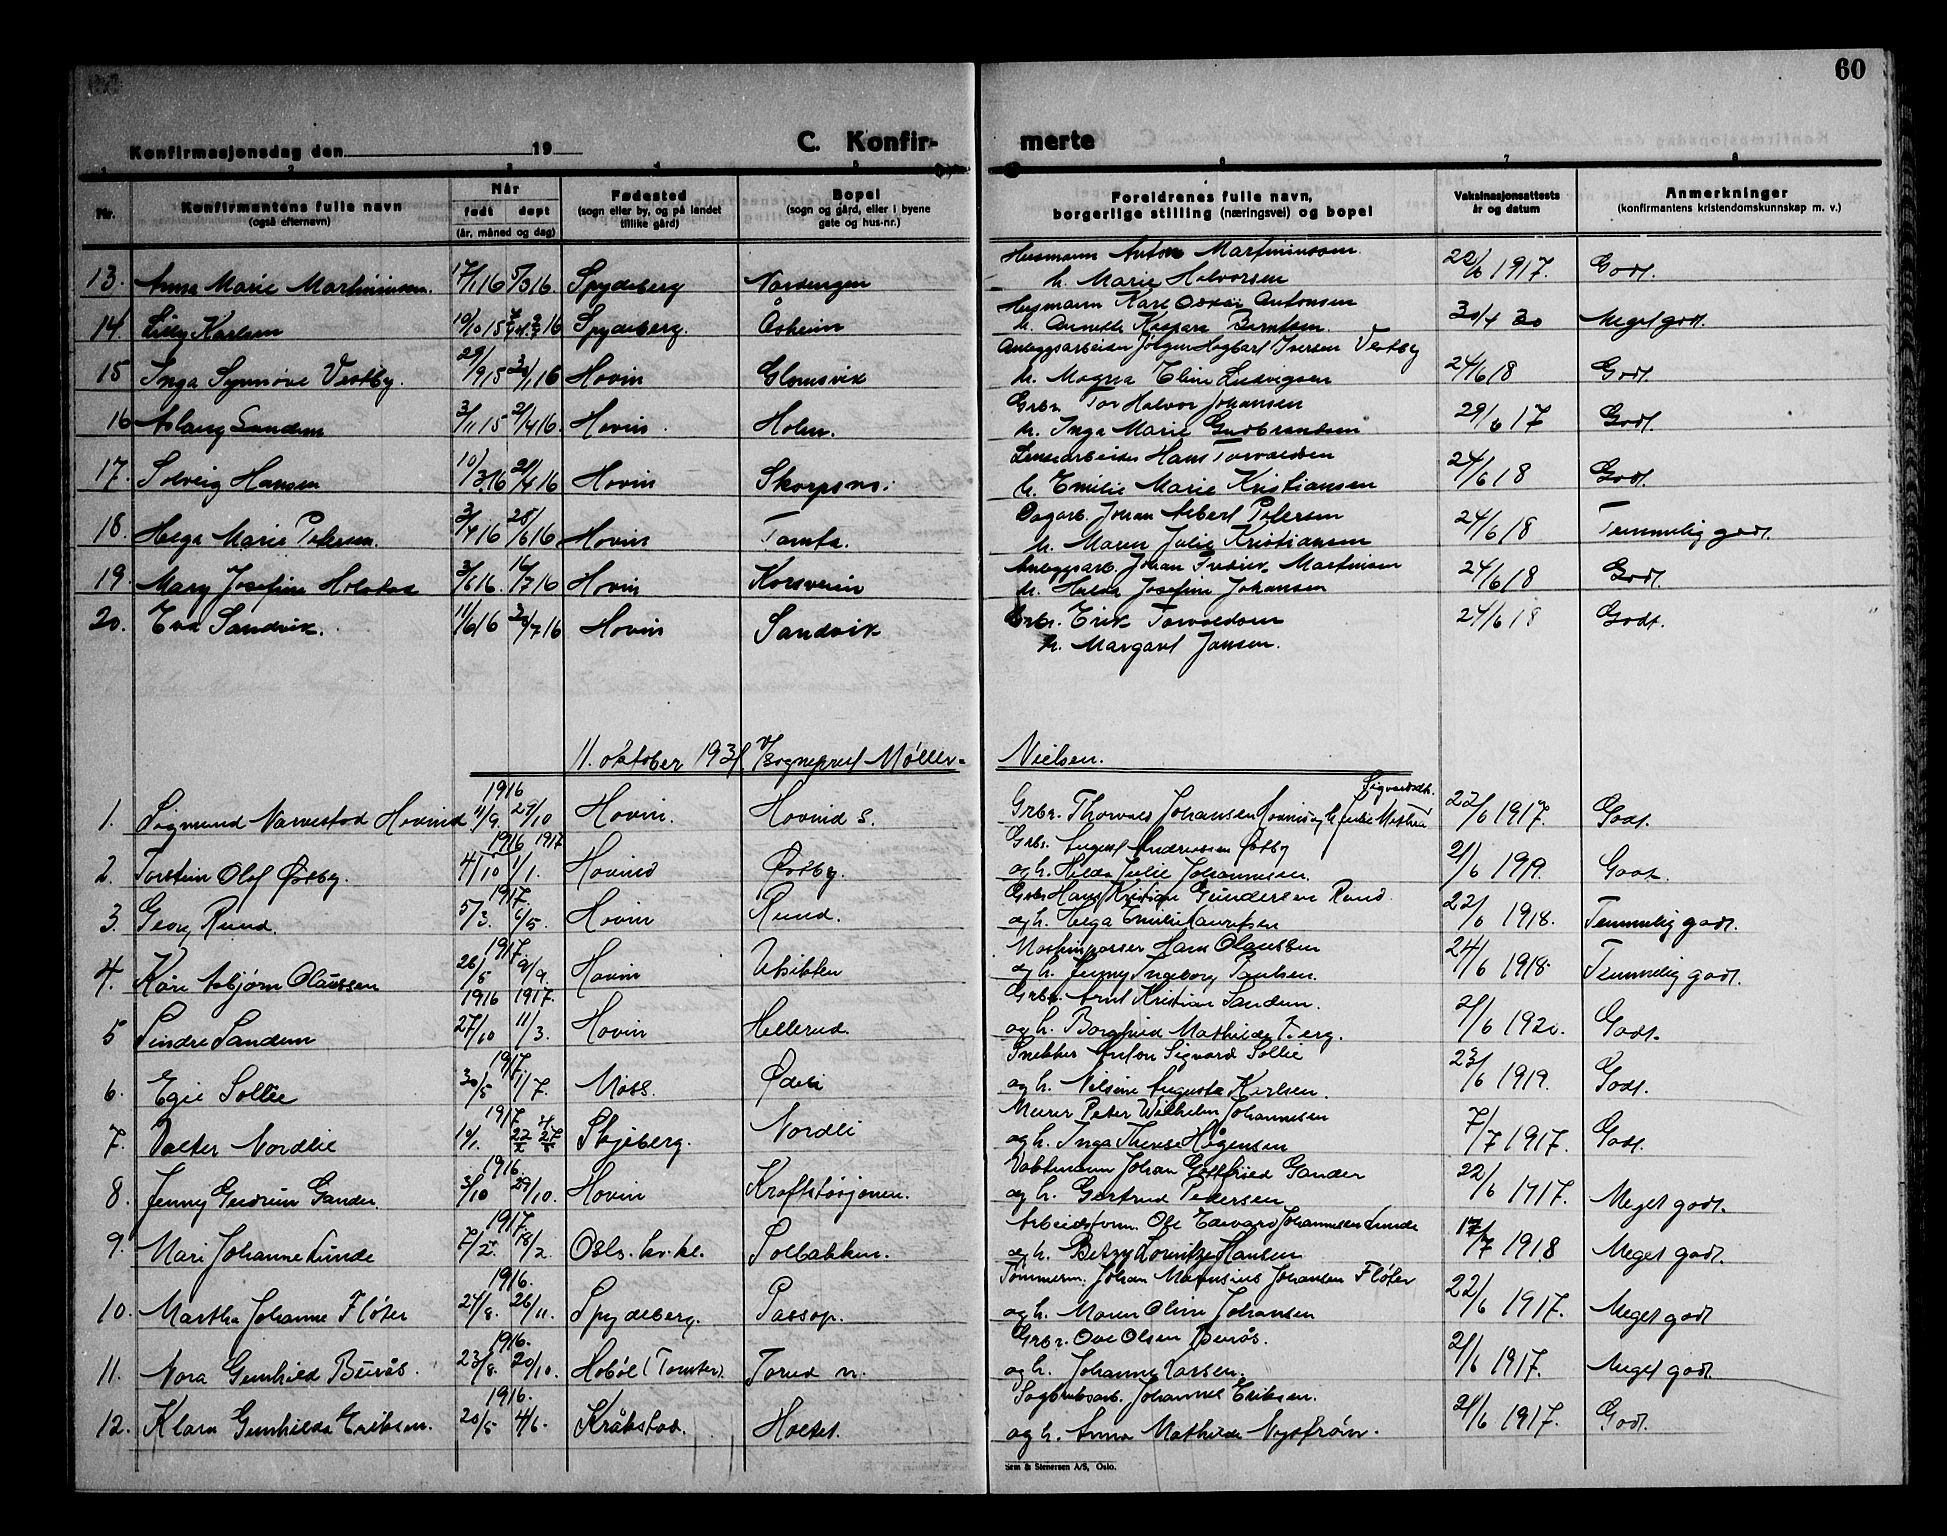 60
Konfirmasjonsdag den 19
C. Konfir- merte
1 2 3 4 5 6 7 8
Nr.
Konfirmantens fulle navn
(også efternavn)
Når
født døpt
(år, måned og dag)
Fødested
(sogn eller by, og på landet
tillike gård)
Bopel
(sogn og gård, eller i byene
gate og hus-nr.)
Foreldrenes fulle navn,
borgerlige stilling (næringsvei) og bopel
Vaksinasjonsattests
år og datum
Anmerkninger
(konfirmantens kristendomskunnskap m. v.)
Husmann Anton Martiniussen
13. Anna Marie Martiniussen. 17/1 16 5/3 16 Spydeberg Nordengen h. Marie Halvorsen 22/6 1917. Godt.
Husmann Karl Oskar Antonsen
14. Lilly Karlsen 19/10 15 16 Spydeberg. Åsheim h. Annette Kaspara Berntsen. 30/4 30 Meget godt.
Anleggsarbeider Jørgen Hagbart Iversen Vestby
15 Inga Synnøve Vestby. 29/9 15 30/1 16 Hovin Glomsvik h. Magna Eline Ludvigsen 24/6 18 Godt.
Grbr. Tor Halvor Johansen
16 Aslaug Sandem 3/11 15 2/4 16. Hovin. Holm. h. Inga Marie Gudbrandsen 29/6 17 Godt.
Lensearbeider Hans Torvaldsen
17. Solveig Hansen 10/3 16 24/4 16 Hovin Skorpsns. h. Emilie Marie Kristiansen 24/6 18 Godt.
Dagarb. Johan Albert Petersen
18. Helga Marie Petersen. 3/4 16 25/6 16 Hovin Tomta. h. Maren Julie Kristiansen 24/6 18 Temmelig godt.
Anleggsarb. Johan Fredrik Martinsen
19. Mary Josefine Holstad 3/6 16. 16/7 16 Hovin Korsveien h. Hulda Josefine Johansen 24/6 18 Godt.
20. Eva Sandvik. 11/6 16 30/7 16 Hovin Sandvik Grbr. Erik Torvaldsen 24/6 18 Godt.
h. Margart Jansen.
11. oktober 1931 v/ Sogneprest Møller- Nielsen.
1916 Sigvardsdt.
1. Sigmund Narvestad Hovind 11/9. 29/10 Hovin. Hovind S. Grbr. Thorvald Johansen Hovind og h. Julie Mathea 22/6 1917. Godt.
1916 1917 Grbr. August Andreassen Østby
2. Torstein Olaf Østby. 4/10 1/1. Hovind Østby. og h. Hilda Julie Johannesen 21/6 1919. Godt.
1917. Grbr. Hans Kristian Gundersen Rund
3. Georg Rund. 5/3. 6/5. Hovin Rund. og h. Helga Emilie Lauritsen 22/6 1918. Temmelig godt.
1917. Maskinpasser Hans Olaussen
4. Kåre Asbjørn Olaussen 26/5 9/9. Hovin Utsikten og h. Jenny Ingeborg Paulsen. 24/6 1918. Temmelig godt.
1916 1917. Grbr. Arnt Kristian Sandem.
5 Sindre Sandem 27/10 11/3. Hovin Hellerud. og h. Borghild Mathilde Berg. 21/6 1920. Godt.
1917. Snekker Anton Sigvard Sollie
6. Egil Sollie 30/5 1/7. Moss. Ødeli og h. Nilsine Augusta Karlsen. 23/6 1919. Godt.
1917 Murer Peter Wilhelm Johannesen
7. Valter Nordlie 10/1. Skjeberg. Nordli og h. Inga Therese Hågensen 7/7 1917. Godt.
1916. Vaktmann Johan Gottfried Gander
8. Jenny Gudrun Gander. 3/10 29/10. Hovin Kraftstasjonen. og h. Gertrud Pedersen 22/6 1917. Meget godt.
1917. Arbeidsform. Ole Edvard Johannesen Lunde
9. Mari Johanne Lunde 7/2. 18/2. Oslo kv.kl. Solbakken. og h. Betzy Lovitze Hansen 17/7 1918 Meget godt.
1916. Tømmerm. Johan Magnus Johansen Fløter
10. Martha Johanne Fløter 24/8. 26/11. Spydeberg. Passop. og h. Maren Oline Johansen 22/6 1917. Meget godt
1916. Grbr. Ove Olsen Burås.
11. Nora Gunhild Burås. 23/8. 20/10. Hobøl (Tomter). Torud n. og h. Johanne Larsen. 21/6 1917. Meget godt
1916. Sagbruksarb. Johannes Eriksen.
12. Klara Gunhilda Eriksen. 20/5 4/6. Kråkstad. Holtet. og h. Anna Mathilde Nystrøm. 21/6 1917. Godt.
Sem & Stenersen A/S, Oslo.